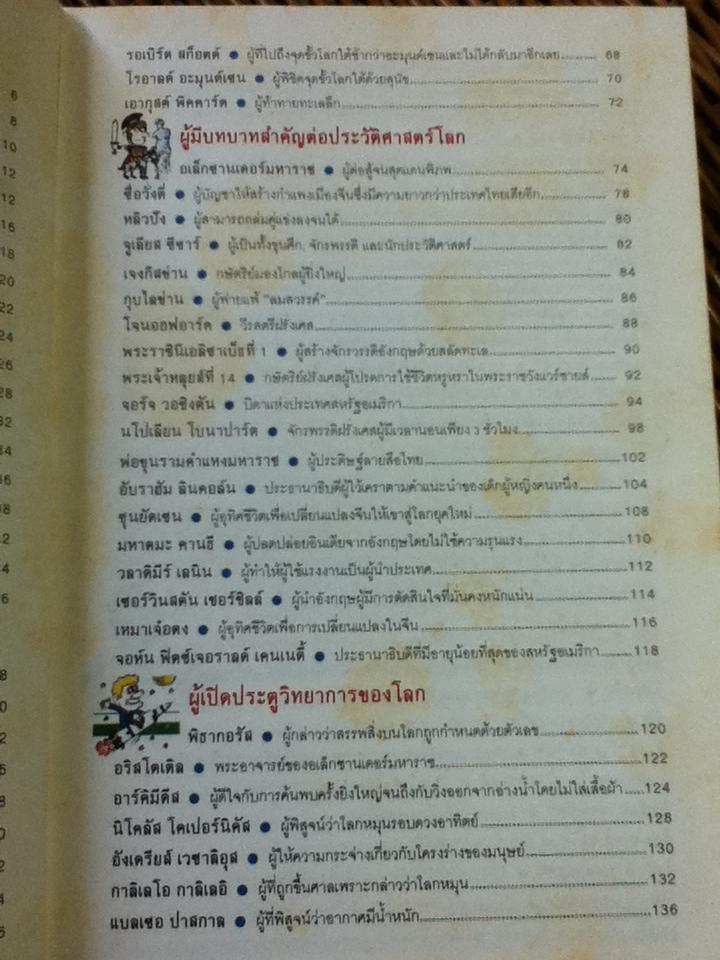 รอเบิร์ต สก็อตต์ ● ผู้ที่ไปถึงขั้วโลกใต้ช้ากว่าอะมุนด์เซนและไม่ได้กลับมาอีกเลย.........68
โรอาลด์ อะมุนด์เซน ● ผู้พิชิตขั้วโลกใต้ด้วยสุนัข.........70
เอากุสต์ พิคคาร์ด ● ผู้ท้าทายทะเลลึก.........72
ผู้มีบทบาทสำคัญต่อประวัติศาสตร์โลก
อเล็กซานเดอร์มหาราช ● ผู้ต่อสู้จนสุดแดนพิภพ.........74
ซื่อวังตี่ ● ผู้บัญชาให้สร้างกำแพงเมืองจีนซึ่งมีความยาวกว่าประเทศไทยเสียอีก.........78
หลิวปัง ● ผู้สามารถถล่มคู่แข่งลงจนได้.........80
จูเลียส ซีซาร์ ● ผู้เป็นทั้งขุนศึก, จักรพรรดิ และนักประวัติศาสตร์.........82
เจงกีสข่าน ● กษัตริย์มองโกลผู้ยิ่งใหญ่.........84
กุบไลข่าน ● ผู้พ่ายแพ้ "ลมสวรรค์".........86
โจนออฟอาร์ค ● วีรสตรีฝรั่งเศส.........88
พระราชินีเอลิซาเบ็ธที่ 1 ● ผู้สร้างจักรวรรดิอังกฤษด้วยสลัดทะเล.........90
พระเจ้าหลุยส์ที่ 14 ● กษัตริย์ฝรั่งเศสผู้โปรดการใช้ชีวิตหรูหราในพระราชวังแวร์ซายส์.........92
จอร์จ วอชิงตัน ● บิดาแห่งประเทศสหรัฐอเมริกา.........94
นโปเลียน โบนาปาร์ต ● จักรพรรดิฝรั่งเศสผู้มีเวลานอนเพียง 3 ชั่วโมง.........98
พ่อขุนรามคำแหงมหาราช ● ผู้ประดิษฐ์ลายสือไทย.........102
อับราฮัม ลินคอล์น ● ประธานาธิบดีผู้ไว้เคราตามคำแนะนำของเด็กผู้หญิงคนหนึ่ง.........104
ซุนยัดเซน ● ผู้อุทิศชีวิตเพื่อเปลี่ยนแปลงจีนให้เข้าสู่โลกยุคใหม่.........108
มหาตมะ คานธี ● ผู้ปลดปล่อยอินเดียจากอังกฤษโดยไม่ใช้ความรุนแรง.........110
วลาดิมีร์ เลนิน ● ผู้ทำให้ผู้ใช้แรงงานเป็นผู้นำประเทศ.........112
เซอร์วินสตัน เชอร์ชิลล์ ● ผู้นำอังกฤษผู้มีการตัดสินใจที่มั่นคงหนักแน่น.........114
เหมาเจ๋อตง ● ผู้อุทิศชีวิตเพื่อการเปลี่ยนแปลงในจีน.........116
จอห์น ฟิตซ์เจอราลด์ เคนเนดี้ ● ประธานาธิบดีที่มีอายุน้อยที่สุดของสหรัฐอเมริกา.........118
ผู้เปิดประตูวิทยาการของโลก
พิธากอรัส ● ผู้กล่าวว่าสรรพสิ่งบนโลกถูกกำหนดด้วยตัวเลข.........120
อริสโตเติล ● พระอาจารย์ของอเล็กซานเดอร์มหาราช.........122
อาร์คิมีดีส ● ผู้ดีใจกับการค้นพบครั้งยิ่งใหญ่จนถึงกับวิ่งออกจากอ่างน้ำโดยไม่ใส่เสื้อผ้า.....124
นิโคลัส โคเปอร์นิคัส ● ผู้พิสูจน์ว่าโลกหมุนรอบดวงอาทิตย์.........128
อังเดรียส์ เวซาลิอุส ● ผู้ให้ความกระจ่างเกี่ยวกับโครงร่างของมนุษย์.........130
กาลิเลโอ กาลิเลอิ ● ผู้ที่ถูกขึ้นศาลเพราะกล่าวว่าโลกหมุน.........132
แบลเซอ ปาสกาล ● ผู้ที่พิสูจน์ว่าอากาศมีน้ำหนัก.........136